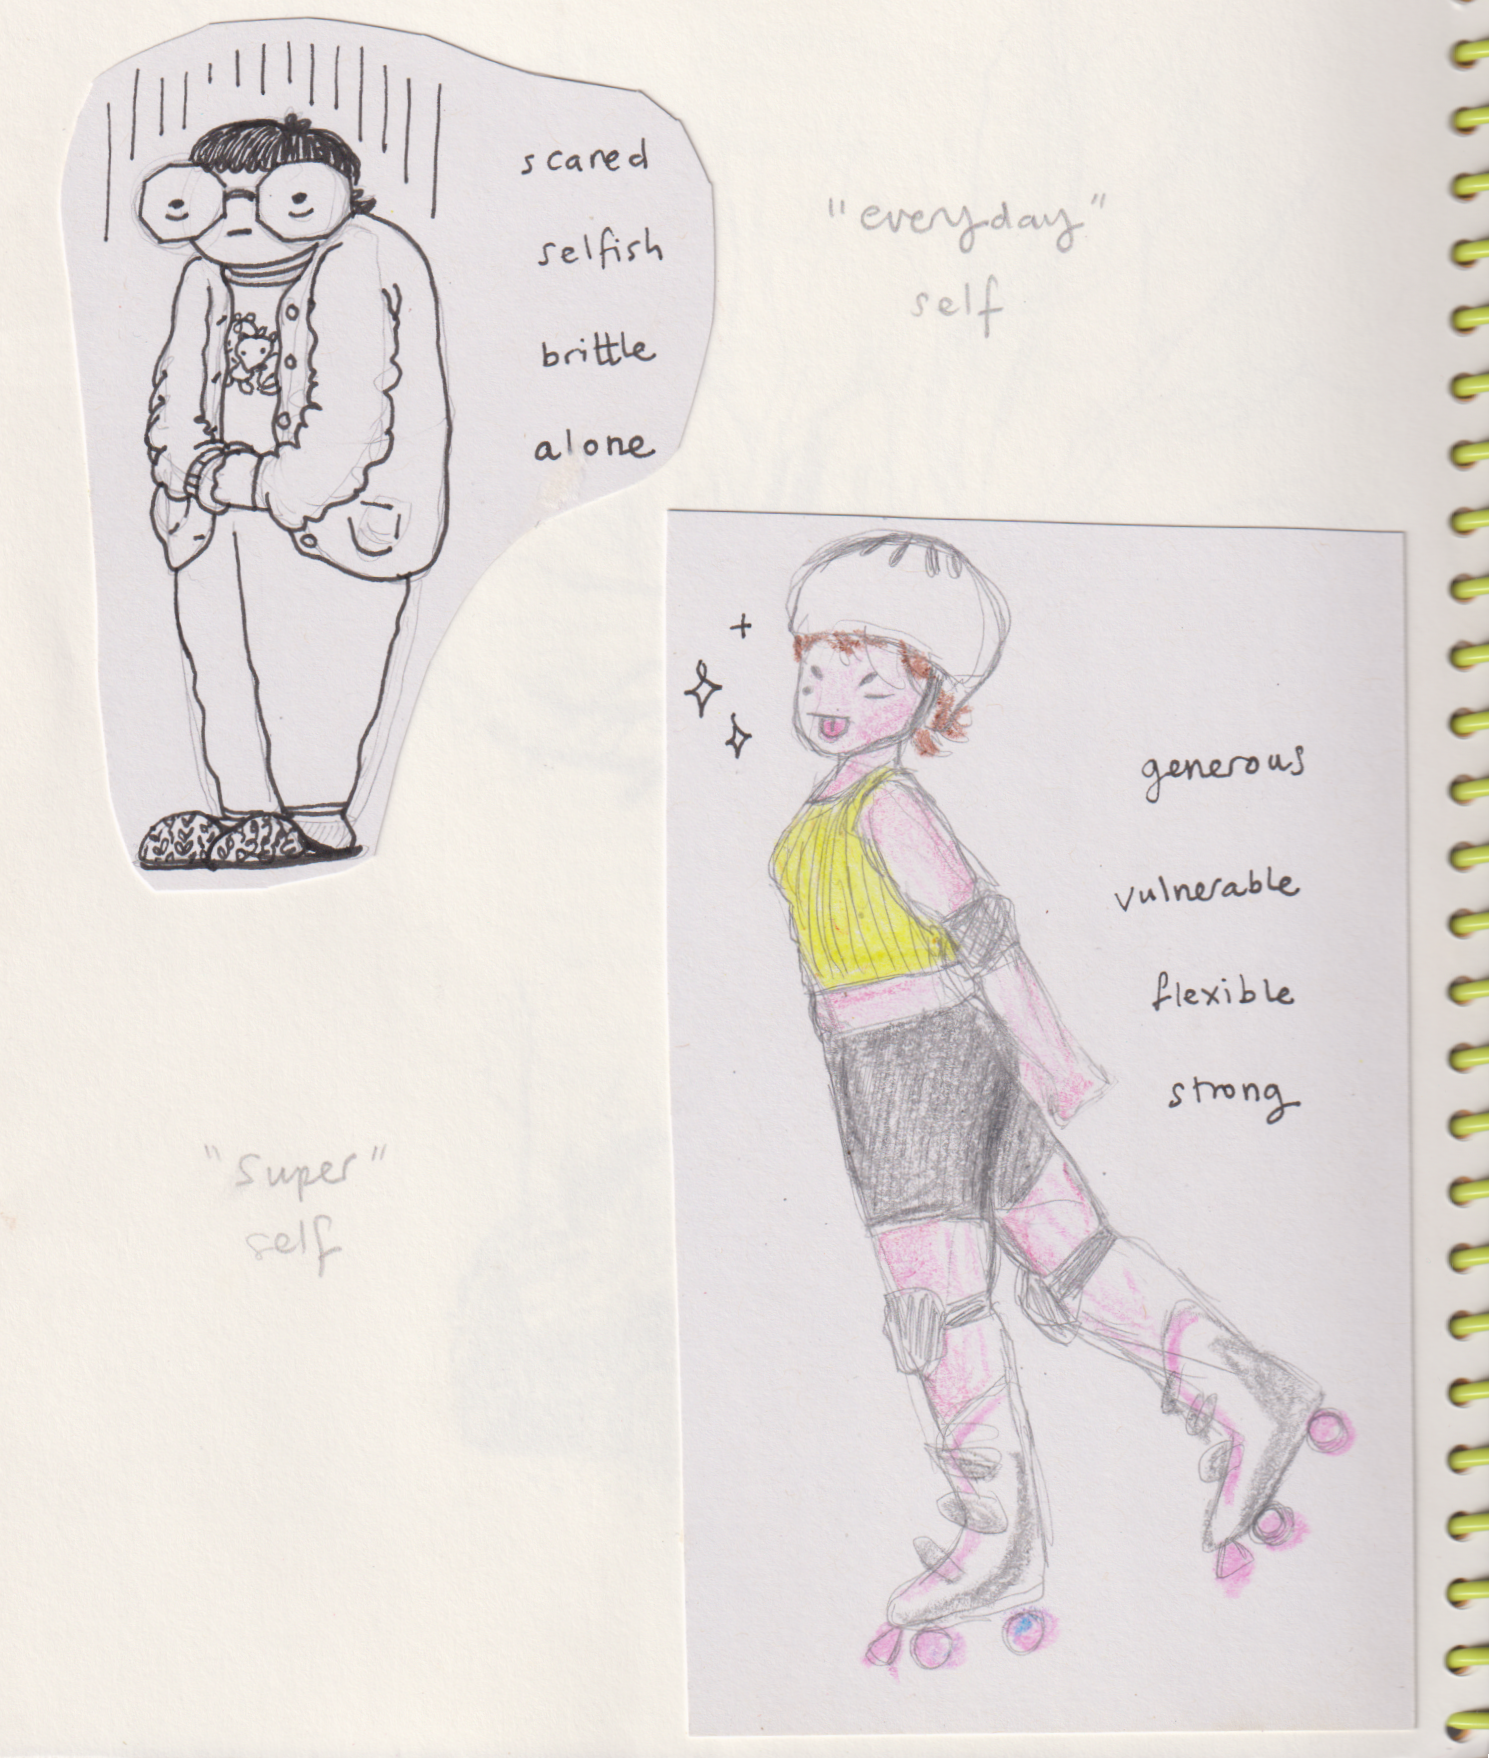 scared
selfish
brittle
alone
"everyday"
self
generous
vulnerable
flexible
strong
"super"
self